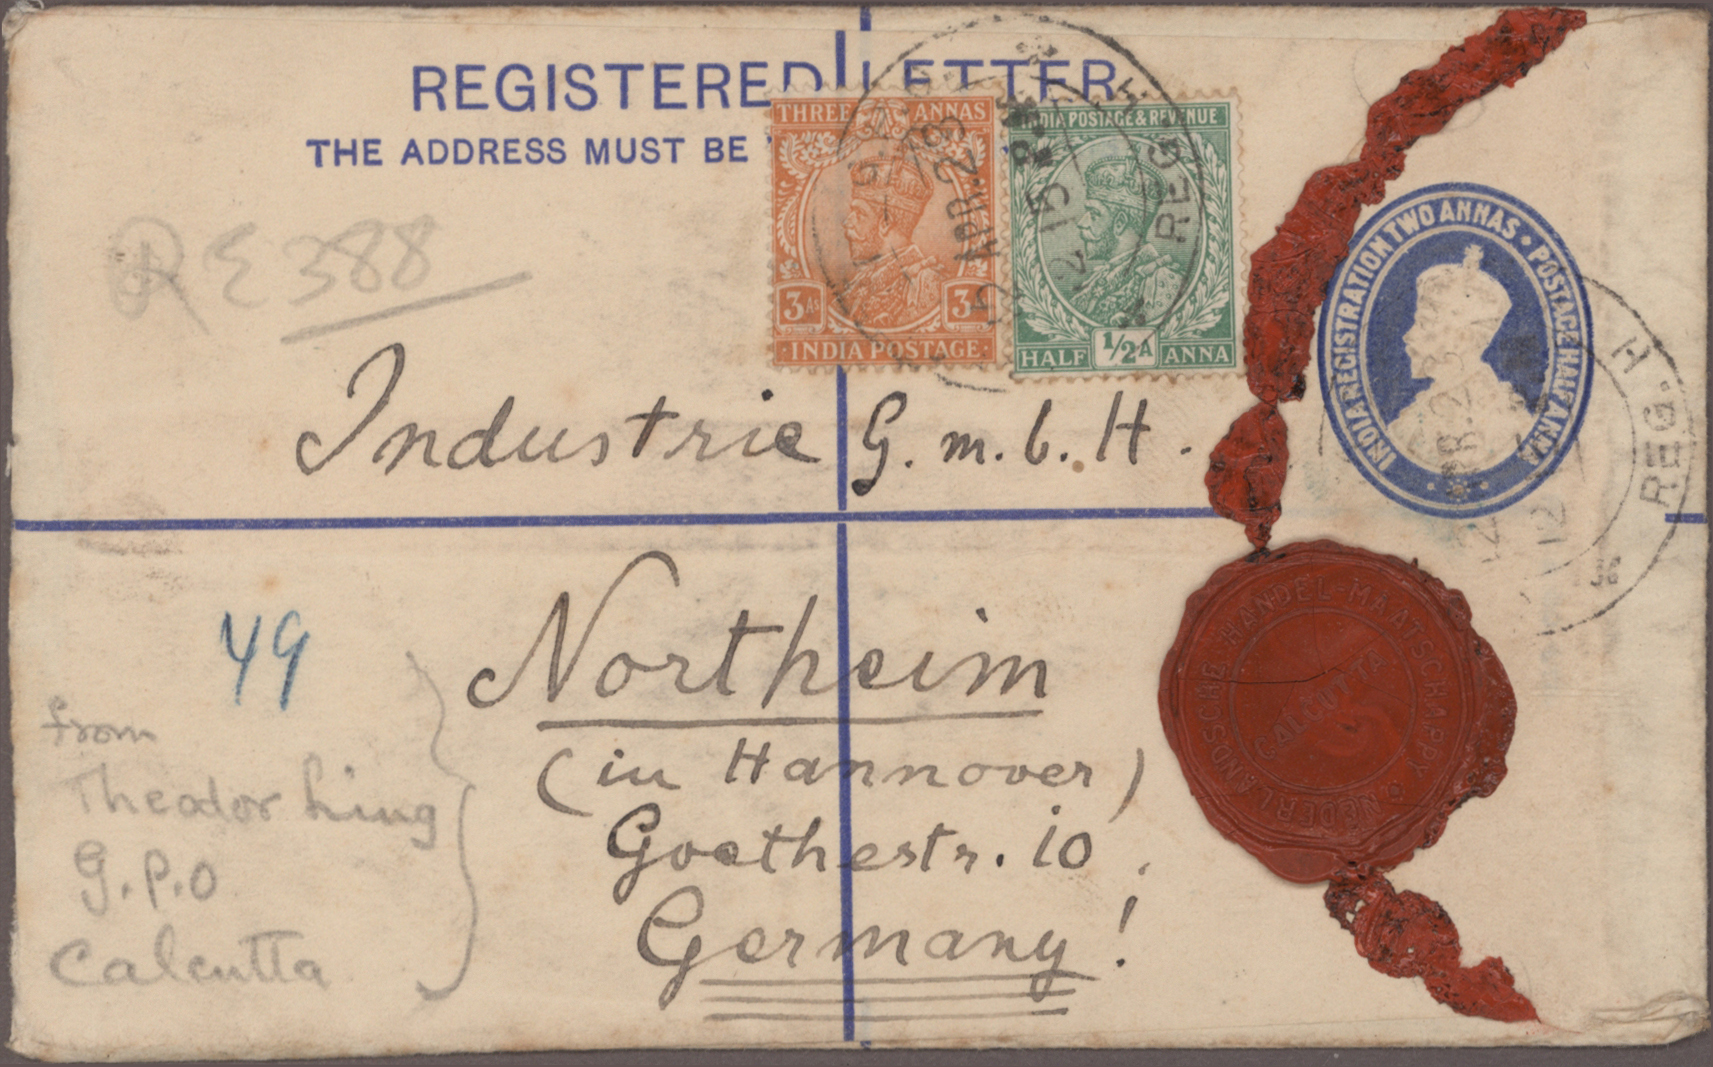 REGISTERED LETTER
THE ADDRESS MUST BE
THREE ANNAS
3As 3
INDIA POSTAGE
INDIA POSTAGE & REVENUE
HALF 1/2A ANNA
INDIA REGISTRATION TWO ANNAS · POSTAGE HALF ANNA
REG.
APR.28
H.
REG.
R E 388
Industrie G.m.b.H.
49
Northeim
(in Hannover)
Goethestr. 10
Germany!
from
Theodor
G.P.O
Calcutta
NEDERLANDSCHE HANDEL-MAATSCHAPPY
CALCUTTA